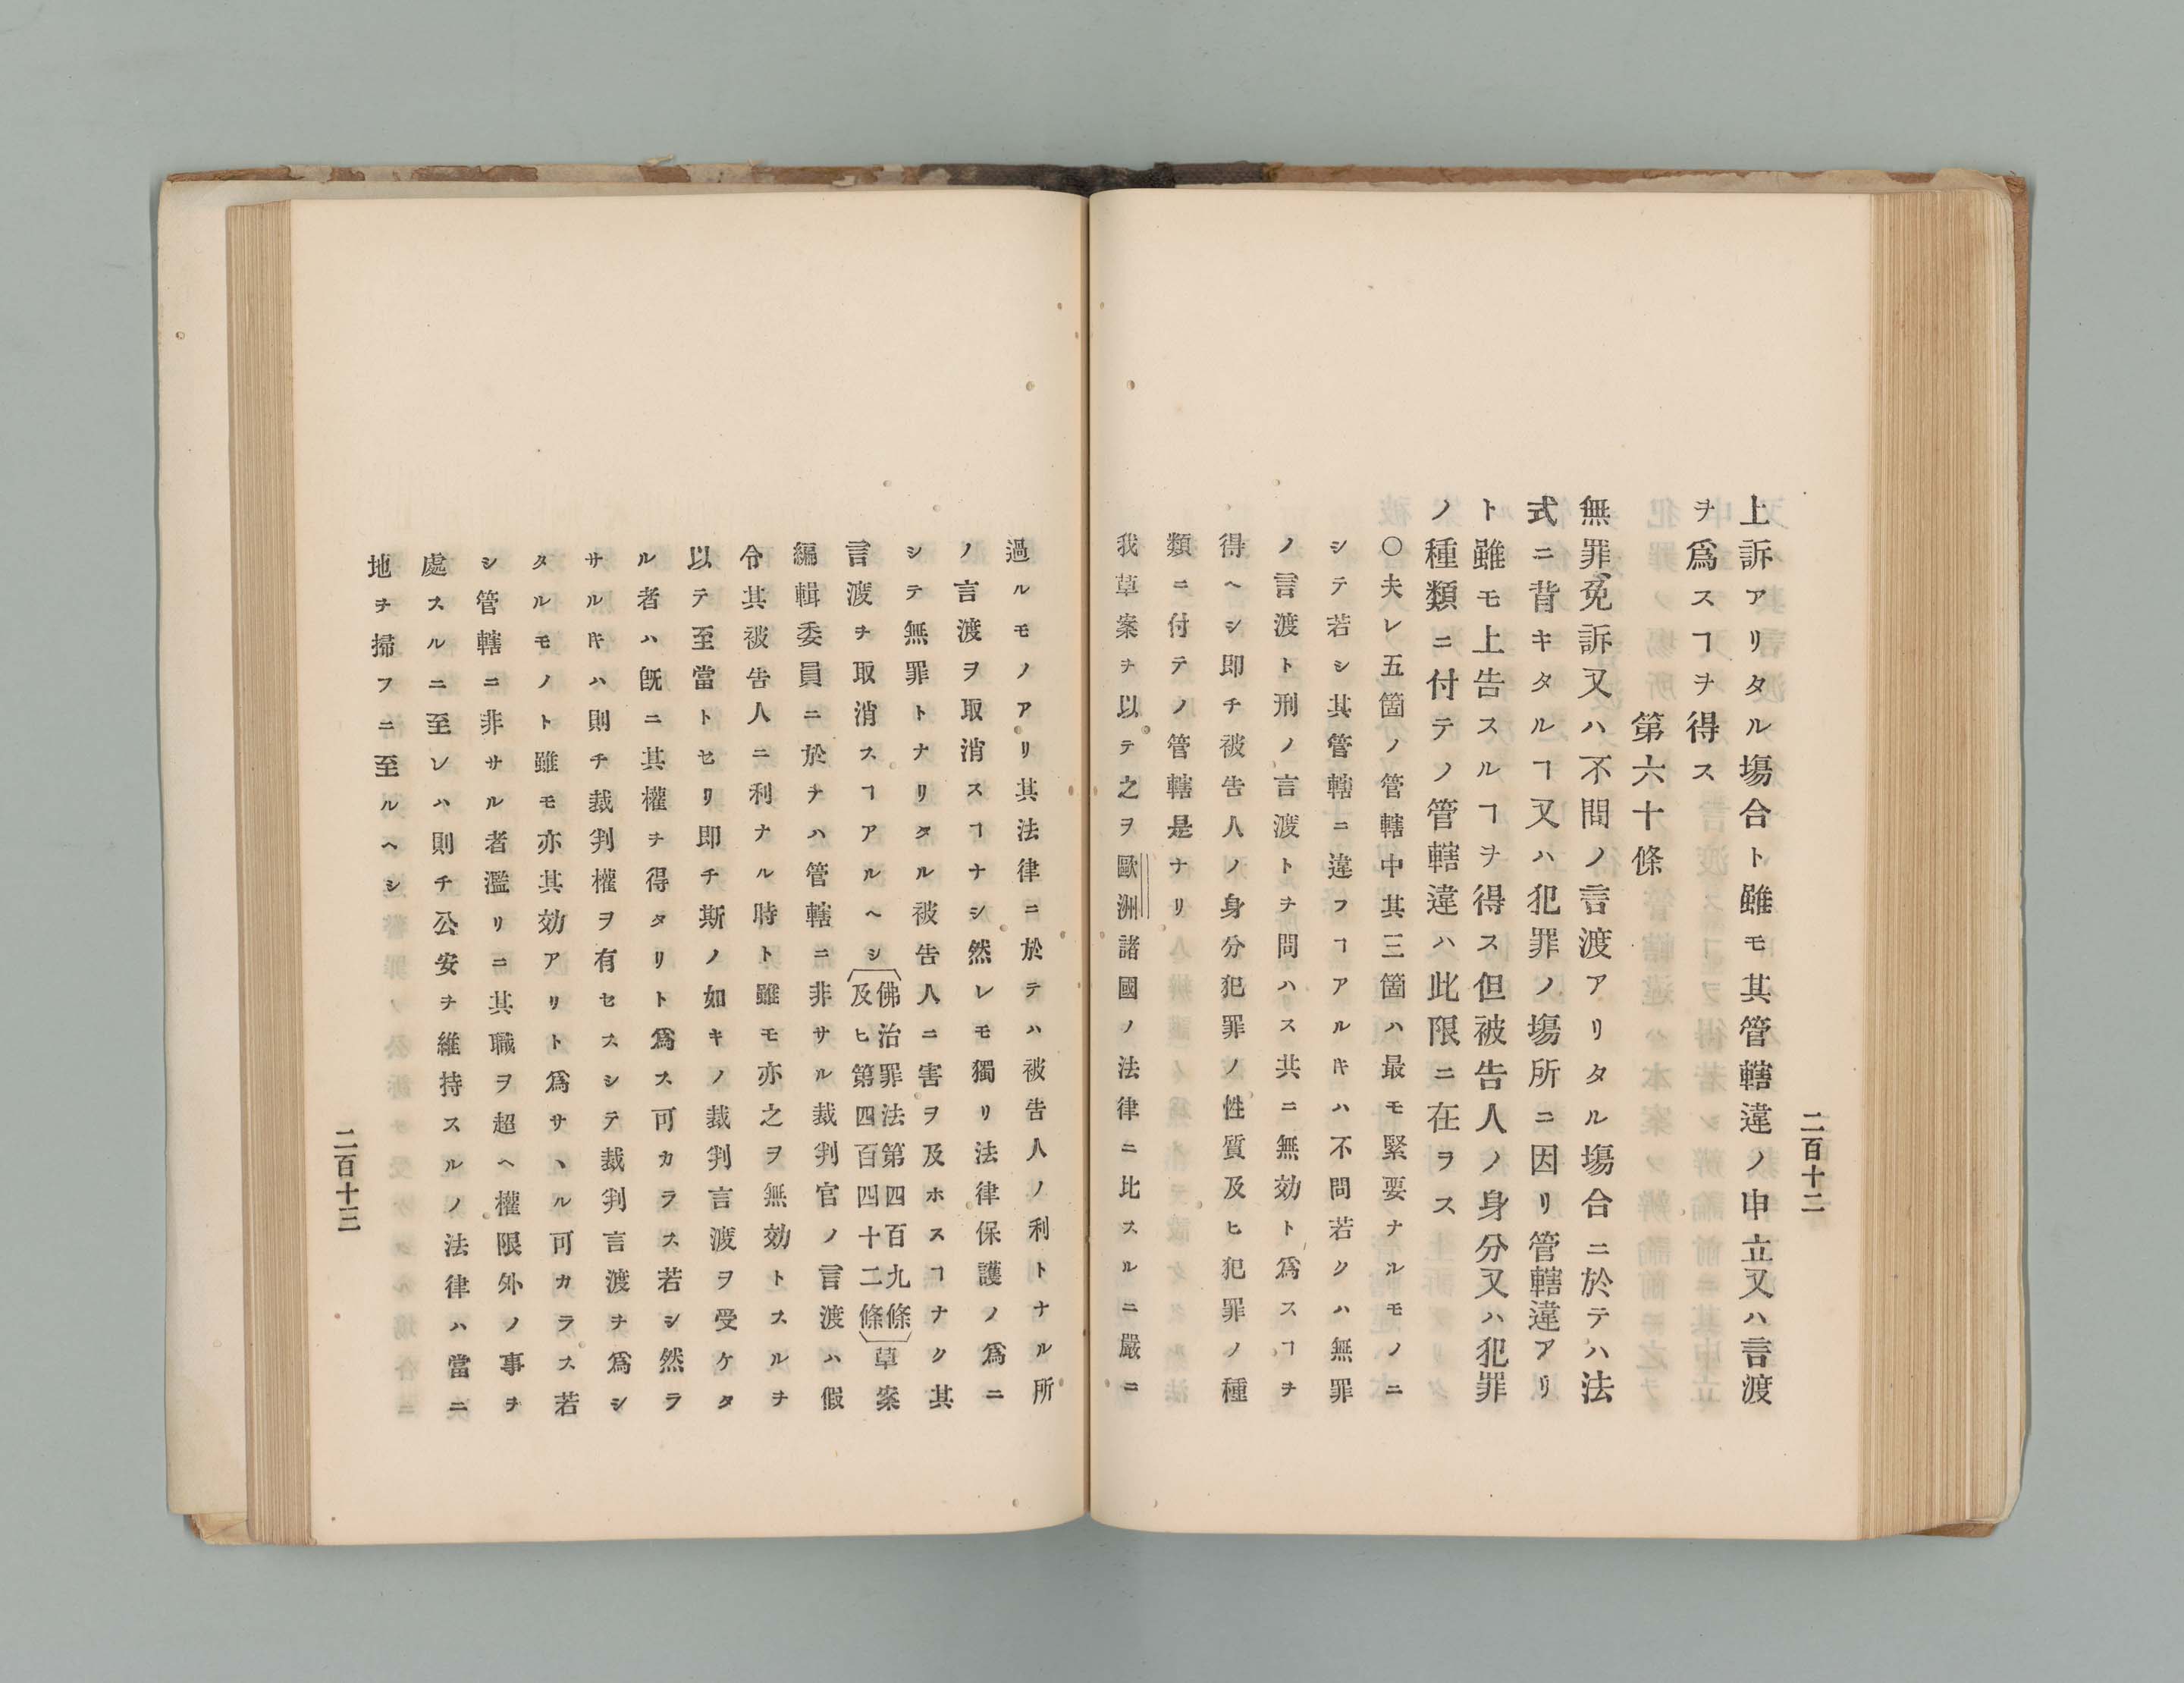 二百十二
上訴アリタル塲合ト雖モ其管轄違ノ申立又ハ言渡
ヲ爲スヿヲ得ス
第六十條
無罪免訴又ハ不問ノ言渡アリタル塲合ニ於テハ法
式ニ背キタルヿ又ハ犯罪ノ塲所ニ因リ管轄違アリ
ト雖モ上告スルヿヲ得ス但被告人ノ身分又ハ犯罪
ノ種類ニ付テノ管轄違ハ此限ニ在ラス
〇夫レ五箇ノ管轄中其三箇ハ最モ緊要ナルモノニ
シテ若シ其管轄ニ違フヿアルキハ不問若クハ無罪
ノ言渡ト刑ノ言渡トヲ問ハス共ニ無効ト爲スヿヲ
得ヘシ即チ被告人ノ身分犯罪ノ性質及ヒ犯罪ノ種
類ニ付テノ管轄是ナリ
我草案ヲ以テ之ヲ歐洲諸國ノ法律ニ比スルニ嚴ニ
過ルモノアリ其法律ニ於テハ被告人ノ利トナル所
ノ言渡ヲ取消スヿナシ然レモ獨リ法律保護ノ爲ニ
シテ無罪トナリタル被告人ニ害ヲ及ホスヿナク其
言渡ヲ取消スヿアルヘシ(佛治罪法第四百九條
及ヒ第四百四十二條)草案
編輯委員ニ於テハ管轄ニ非サル裁判官ノ言渡ハ假
令其被告人ニ利ナル時ト雖モ亦之ヲ無効トスルヲ
以テ至當トセリ即チ斯ノ如キノ裁判言渡ヲ受ケタ
ル者ハ旣ニ其權ヲ得タリト爲ス可カラス若シ然ラ
サルキハ則チ裁判權ヲ有セスシテ裁判言渡ヲ爲シ
タルモノト雖モ亦其効アリト爲サヽル可カラス若
シ管轄ニ非サル者濫リニ其職ヲ超ヘ權限外ノ事ヲ
處スルニ至レハ則チ公安ヲ維持スルノ法律ハ當ニ
地ヲ掃フニ至ルヘシ
二百十三